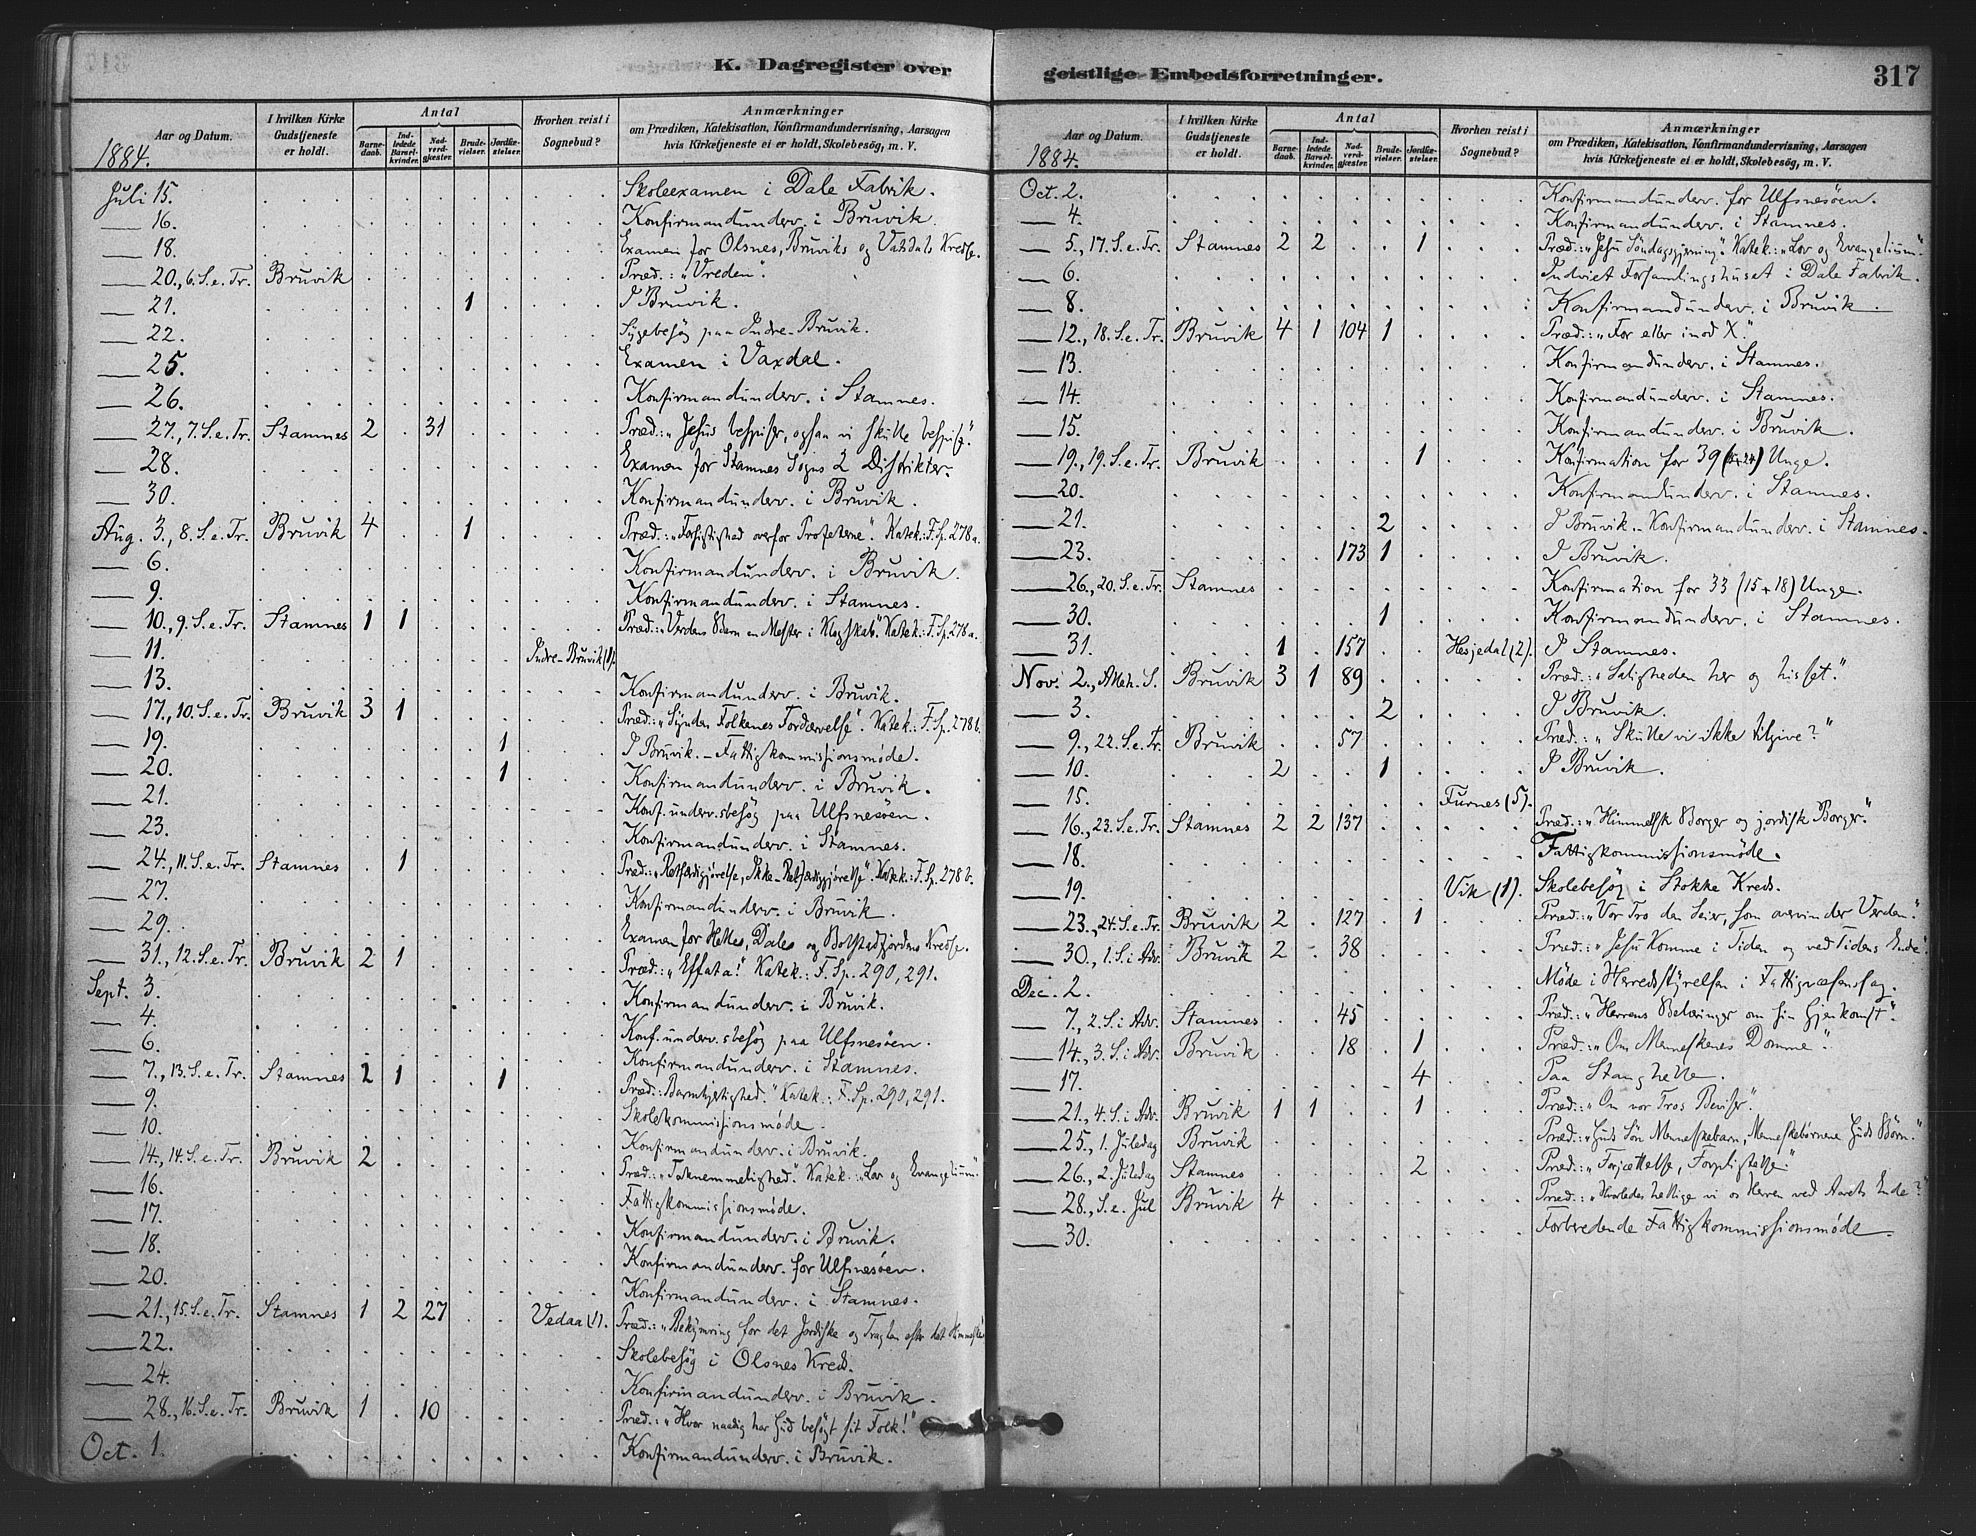 K. Dagregister over
Aar og Datum.
I hvilken Kirke Gudstjeneste er holdt.
Antal
Barnedaab.
Indledede Barselkvinder.
Nadverdgjester.
Brudevielser.
Jordfæstelser.
Hvorhen reist i Sognebud?
Anmærkninger
om Prædiken, Katekisation, Konfirmandundervisning, Aarsagen
hvis Kirketjeneste ei er holdt, Skolebesøg, m. V.
1884.
Juli 15. Skoleexamen i Dale Fabrik.
16. Konfirmandunderv. i Bruvik.
18. Examen for Olsnes, Bruviks og Vaxdals Kredse.
20., 6. S. e. Tr. Bruvik Præd.: „Vreden".
21. 1 I Bruvik.
22. Sygebesøg paa Indre-Bruvik.
25. Examen i Vaxdal.
26. Konfirmandunderv. i Stamnes.
27., 7. S. e. Tr. Stamnes 2 31 Præd.: „Jesus bespiser, ogsaa vi skulle bespise".
28. Examen for Stamnes Sogns 2 Distrikter.
30. Konfirmandunderv. i Bruvik.
Aug. 3., 8. S. e. Tr. Bruvik 4 1 Præd.: „Forsigtighed overfor Profeterne". Katek.: F. Sp. 278 a.
6. Konfirmandunderv. i Bruvik.
9. Konfirmandunderv. i Stamnes.
10., 9. S. e. Tr. Stamnes 1 1 Præd.: „Verdens Barn en Mester i Klogskab". Katek.: F. Sp. 278 a.
11. Indre-Bruvik (1).
13. Konfirmandunderv. i Bruvik.
17., 10. S. e. Tr. Bruvik 3 1 Præd.: „Synden Folkenes Fordærvelse". Katek.: F. Sp. 278 b.
19. 1 I Bruvik. – Fattigkommissionsmøde.
20. 1 Konfirmandunderv. i Bruvik.
21. Konf.underv.sbesøg paa Ulfsnesøen.
23. Konfirmandunderv. i Stamnes.
24., 11. S. e. Tr. Stamnes 1 Præd.: „Retfærdigjørelse, Ikke-Retfærdiggjørelse". Katek.: F. Sp. 278 b.
27. Konfirmandunderv. i Bruvik.
29. Examen for Helles, Dales og Bolstadfjordens Kredse.
31., 12. S. e. Tr. Bruvik 2 1 Præd.: „Effata!" Katek.: F. Sp. 290, 291.
Sept. 3. Konfirmandunderv. i Bruvik.
4. Konf.underv.sbesøg paa Ulfsnesøen.
6. Konfirmandunderv. i Stamnes.
7., 13. S. e. Tr. Stamnes 2 1 1 Præd.: Barmhjertighed." Katek.: F. Sp. 290, 291.
9. Skolekommissionsmøde.
10. Konfirmandunderv. i Bruvik.
14., 14. S. e. Tr. Bruvik 2 Præd.: „Taknemmelighed". Katek.: „Lov og Evangelium"
16. Fattigkommissionsmøde.
17. Konfirmandunderv. i Bruvik.
18. Konfirmandunderv. for Ulfsnesøen.
20. Konfirmandunderv. i Stamnes.
21., 15. S. e. Tr. Stamnes 1 2 27 Vedaa (1). Præd.: „Bekymring for det Jordiske og Tragten efter det Himmelske
22. Skolebesøg i Olsnes Kreds.
24. Konfirmandunderv. i Bruvik.
28., 16. S. e. Tr. Bruvik 1 10 Præd.: „Hvor naadig har Gud besøgt sit Folk!"
Oct. 1. Konfirmandunderv. i Bruvik.
geistlige Embedsforretninger. 317
Aar og Datum.
I hvilken Kirke Gudstjeneste er holdt.
Antal
Barnedaab.
Indledede Barselkvinder.
Nadverdgjester.
Brudevielser.
Jordfæstelser.
Hvorhen reist i Sognebud?
Anmærkninger
om Prædiken, Katekisation, Konfirmandundervisning, Aarsagen
hvis Kirketjeneste ei er holdt, Skolebesøg, m. V.
1884.
Oct. 2. Konfirmandunderv. for Ulfsnesøen.
4. Konfirmandunderv. i Stamnes.
5., 17. S. e. Tr. Stamnes 2 2 1 Præd.: „Jesu Søndagsgjerning". Katek.: „Lov og Evangelium".
6. Indviet Forsamlingshuset i Dale Fabrik.
8. Konfirmandunderv. i Bruvik.
12., 18. S. e. Tr. Bruvik 4 1 104 1 Præd.: „For eller imod X."
13. Konfirmandunderv. i Stamnes.
14. Konfirmandunderv. i Stamnes.
15. Konfirmandunderv. i Bruvik.
19., 19. S. e. Tr. Bruvik 1 Konfirmation for 39 Unge.
20. Konfirmandunderv. i Stamnes.
21. 2 I Bruvik. Konfirmandunderv. i Stamnes.
23. 173 1 I Bruvik.
26., 20. S. e. Tr. Stamnes Konfirmation for 33 (15+18) Unge.
30. 1 Konfirmandunderv. i Stamnes.
31. 1 157 Hesjedal (2). I Stamnes.
Nov. 2., Alleh. S. Bruvik 3 1 89 Præd.: „Saligheden her og hisset."
3. 2 I Bruvik.
9., 22. S. e. Tr. Bruvik 57 Præd.: „Skulle vi ikke tilgive?"
10. 2 1 I Bruvik.
15. Furnes (5).
16., 23. S. e. Tr. Stamnes 2 2 137 Præd.: „Himmelsk Borger og jordisk Borger."
18. Fattigkommissionsmøde.
19. Vik (1). Skolebesøg i Stokke Kreds.
23., 24. S. e. Tr. Bruvik 2 127 1 Præd.: „Vor Tro den Seier, som overvinder Verden."
30., 1. S. i Adv. Bruvik 2 38 Præd.: „Jesu Komme i Tiden og ved Tidens Ende".
Dec. 2. Møde i Herredsstyrelsen i Fattigvæsenssag.
7., 2. S. i Adv. Stamnes 45 Præd.: „Herrens Belæringer om sin Gjenkomst".
14., 3. S. i Adv. Bruvik 18 1 Præd.: „Om Menneskenes Domme".
17. 4 Paa Stanghelle.
21., 4. S. i Adv. Bruvik 1 1 1 Præd.: „Om vor Tros Beviser".
25., 1. Juledag Bruvik Præd.: „Guds Søn Menneskebarn, Menneskebørnene Guds Børn."
26., 2. Juledag Stamnes 2 Præd.: „Forjættelse, Forpligtelse"
28., S. e. Jul Bruvik 4 Præd.: „Hvorledes hellige vi os Herren ved Aarets Ende?"
30. Forberedende Fattigkommissionsmøde.